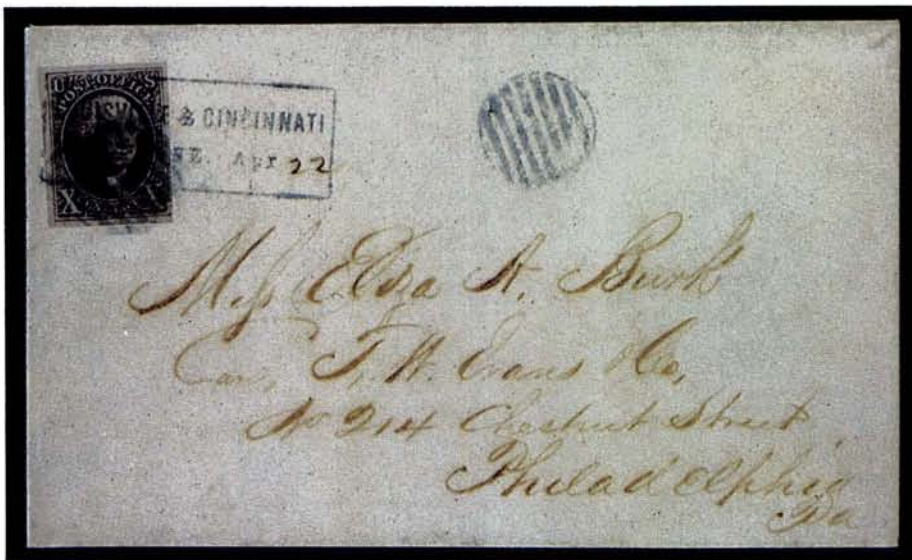 POST OFFICE
& CINCINNATI
Apr 22
X X
Miss Eliza A. Burk
Care, T. H. Evans & Co,
No 214 Chestnut Street
Philadelphia
Pa